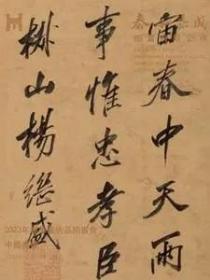 宙春中天雨
事惟忠孝臣
椒山楊繼盛